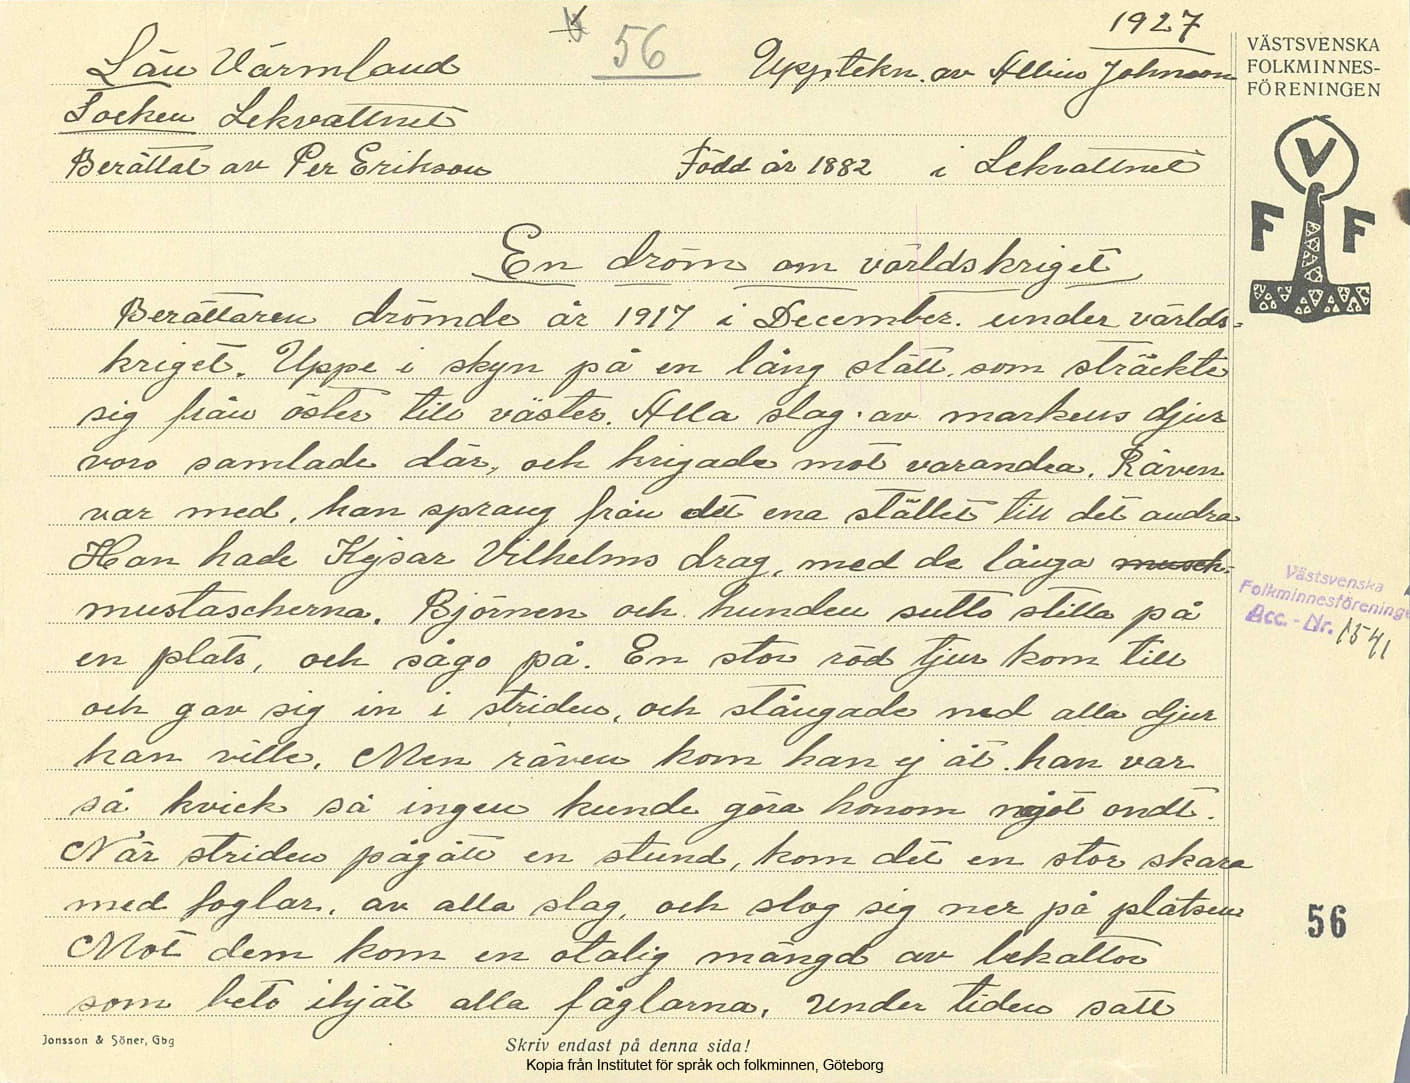 1927
56
Län Värmland
Upptekn. av Albin Johnson
Socken Lekvattnet
Berättat av Per Erikson
Född år 1882 i Lekvattnet
VÄSTSVENSKA
FOLKMINNES-
FÖRENINGEN
V
F F
En dröm om världskriget
Berättaren drömde år 1917 i December. under världs-
kriget. Uppe i skyn på en lång slätt, som sträckte
sig från öster till väster. Alla slag av markens djur
voro samlade där, och krigade mot varandra. Räven
var med, han sprang från det ena stället till det andra
Han hade Kejsar Vilhelms drag, med de långa musch-
mustascherna. Björnen och hunden sutto stilla på
en plats, och sågo på. En stor röd tjur kom till
och gav sig in i striden, och stångade ned alla djur
han ville. Men räven kom han ej åt. han var
så kvick så ingen kunde göra honom något ondt.
När striden pågått en stund, kom det en stor skara
med foglar, av alla slag, och slog sig ner på platsen
Mot dem kom en otalig mängd av lekattor
som beto ihjäl alla fåglarna. Under tiden satt
Västsvenska
Folkminnesförening
Acc. - Nr. 1541
56
Jonsson & Söner, Gbg
Skriv endast på denna sida!
Kopia från Institutet för språk och folkminnen, Göteborg